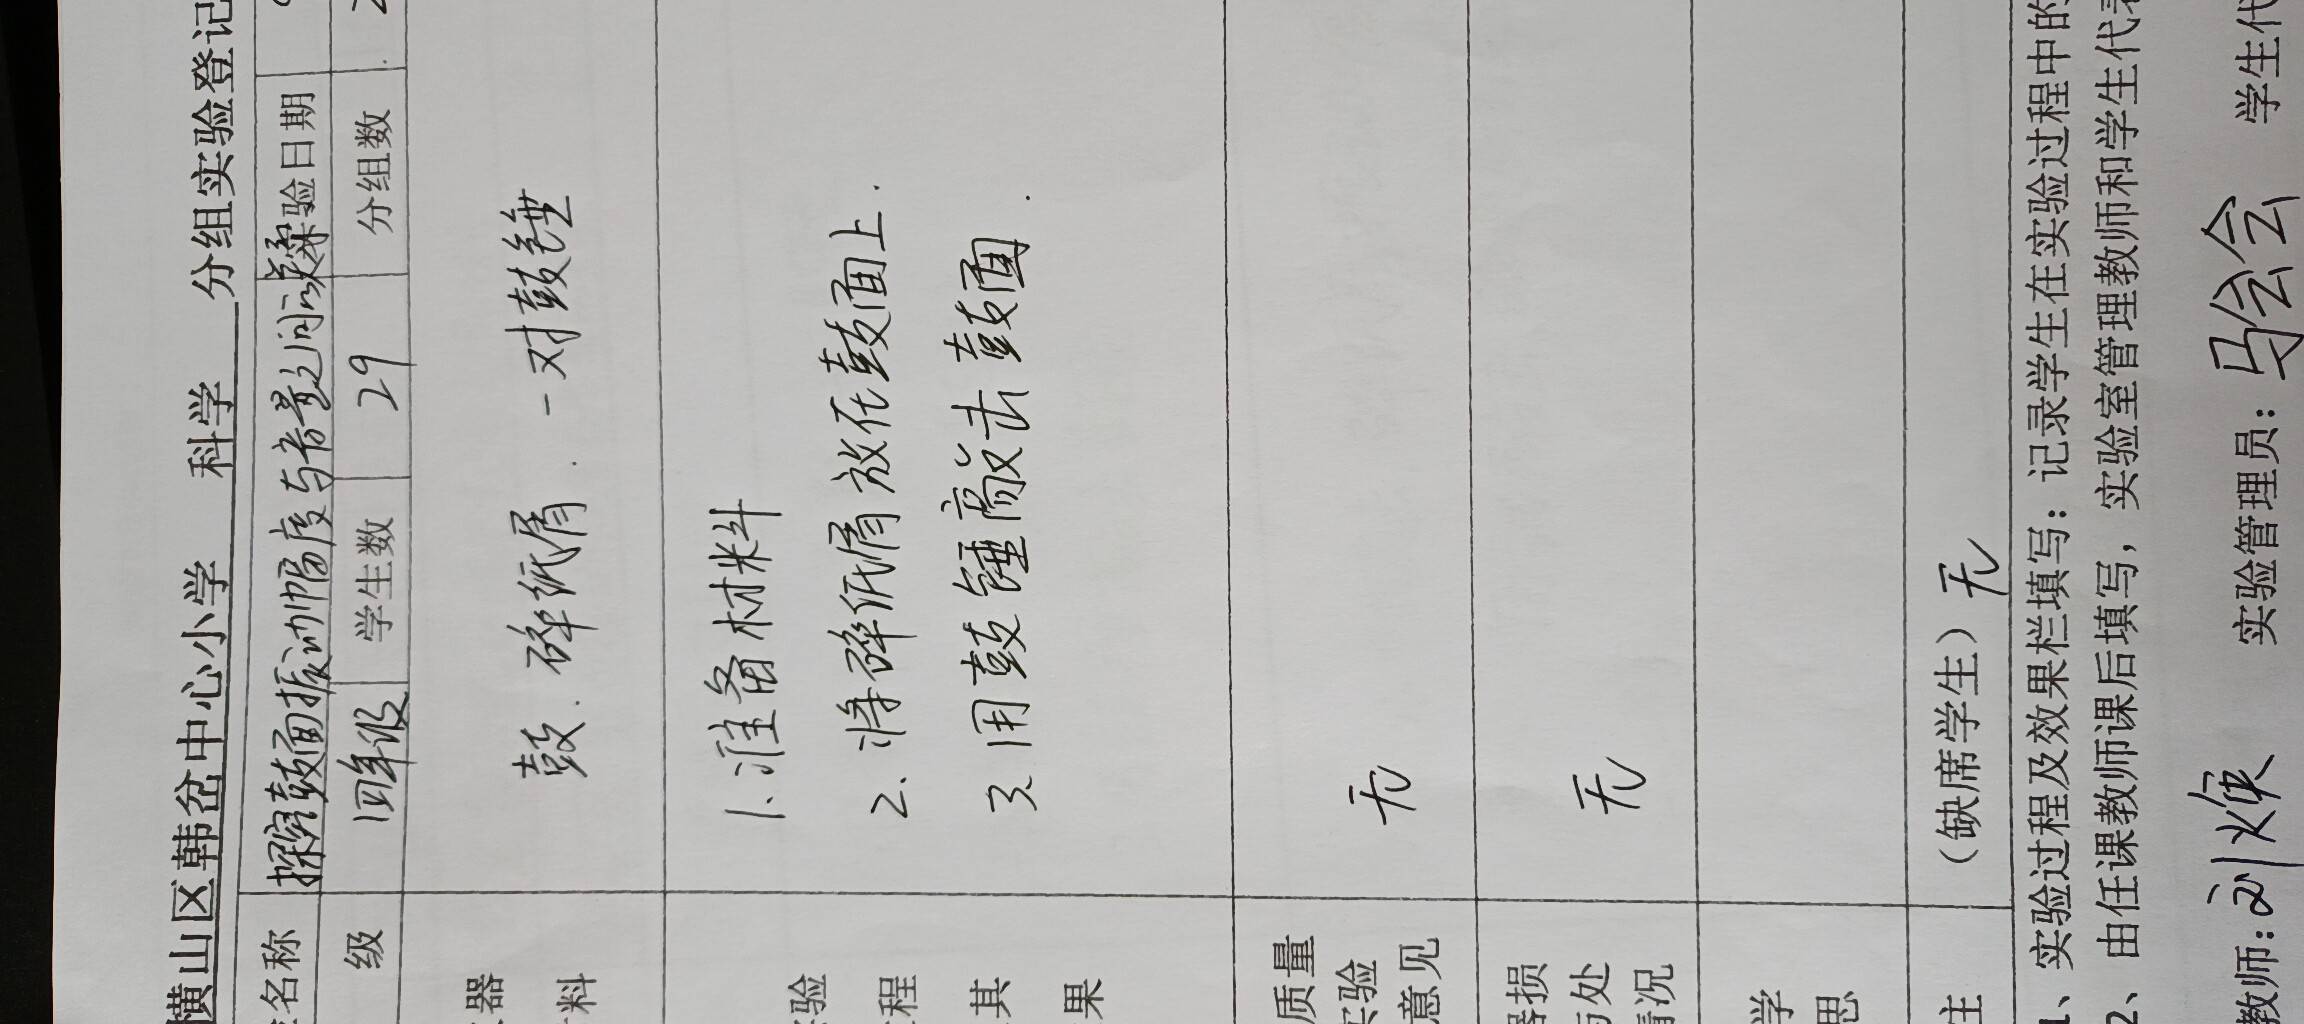 横山区韩岔中心小学 科学 分组实验登记
名称 探究鼓面振动幅度与音量之间 实验日期
级 四年级 学生数 29 分组数
器 料 鼓. 碎纸屑. 一对鼓锤
验 程 其 果
1. 准备材料
2. 将碎纸屑放在鼓面上.
3. 用鼓锤敲击鼓面.
质量 实验 意见 无
器损 与处 情况 无
学 思
注 (缺席学生) 无
1、实验过程及效果栏填写：记录学生在实验过程中的
2、由任课教师课后填写，实验室管理教师和学生代表
教师: 刘焕 实验管理员: 马会会 学生代